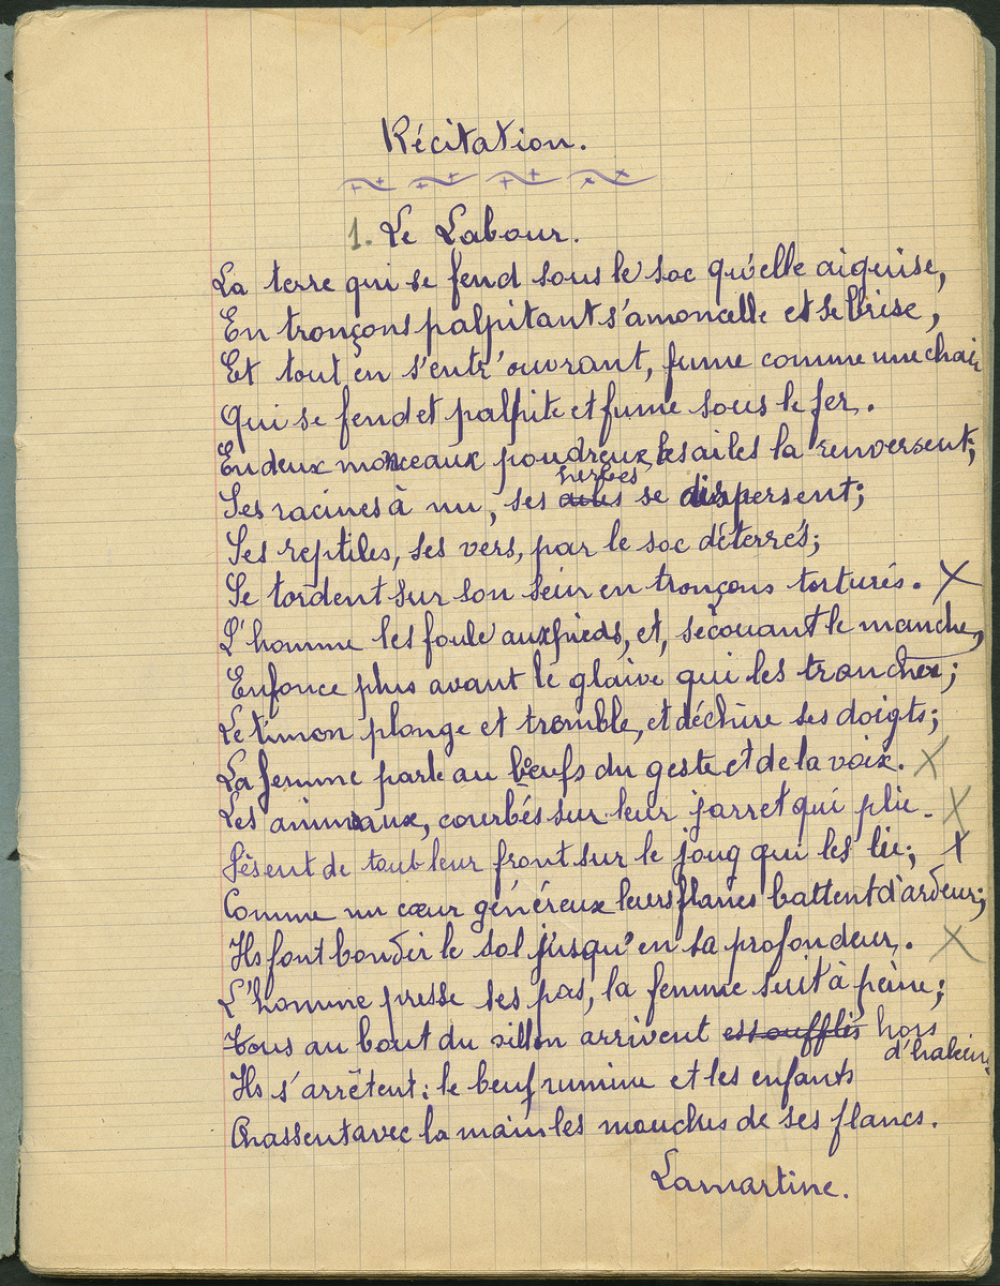 Récitation.
1. Le Labour.
La terre qui se fend sous le soc qu'elle aiguise,
En tronçons palpitants s'amoncelle et se brise,
Et tout en s'entr'ouvrant, fume comme une chair
Qui se fend et palpite et fume sous le fer.
En deux monceaux poudreux les ailes la renversent;
Ses racines à nu, ses ailes herbes se dispersent;
Ses reptiles, ses vers, par le soc déterrés;
Se tordent sur son sein en tronçons torturés.
L'homme les foule aux pieds, et, secouant le manche,
Enfonce plus avant le glaive qui les tranche;
Le timon plonge et tremble, et déchire ses doigts;
La femme parle au bœufs du geste et de la voix.
Les animaux, courbés sur leur jarret qui plie.
Pèsent de tout leur front sur le joug qui les lie;
Comme un cœur généreux leurs flancs battent d'ardeur;
Ils font bondir le sol jusqu'en sa profondeur.
L'homme presse ses pas, la femme suit à peine;
Tous au bout du sillon arrivent essoufflés hors
d'haleine
Ils s'arrêtent: le bœuf rumine et les enfants
Chassent avec la main les mouches de ses flancs.
Lamartine.